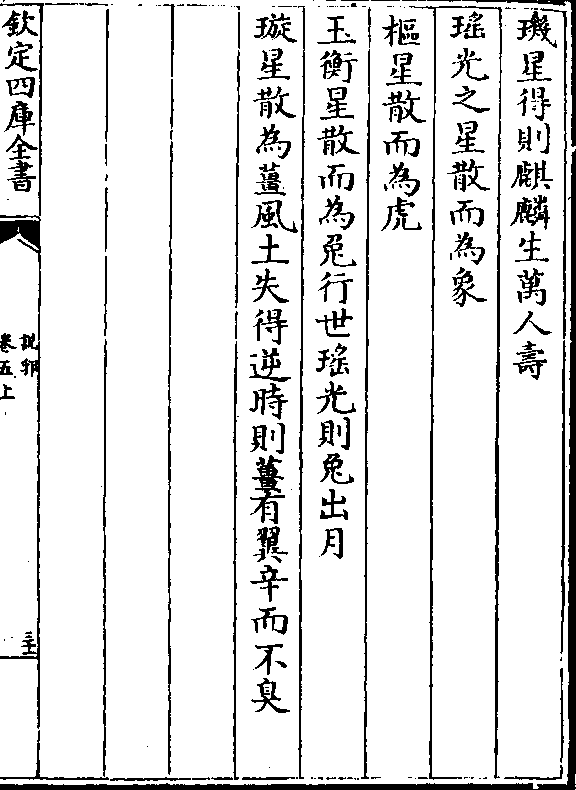 璣星得則麒麟生萬人壽
瑤光之星散而為象
樞星散而為虎
玉衡星散而為兎行世瑤光則兔出月
璇星散為薑風土失得逆時則薑有翼辛而不臭
欽定四庫全書
說郛
卷五上